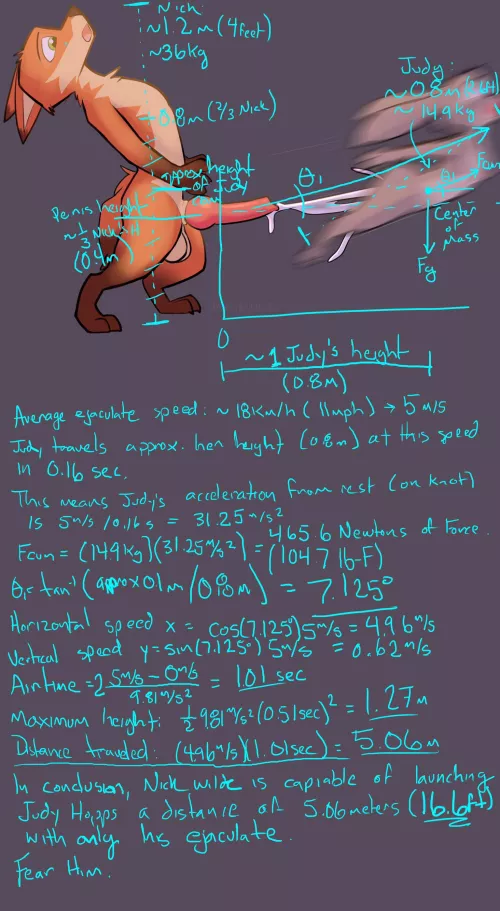 Nick:
~1.2m (4 feet)
~36kg
0.8m (2/3 Nick)
Judy:
~0.8m
~14.9kg
Approx. height
of Judy
cum
Penis height
~1/3 Nick's H
(0.4m)
θ₁
θ₁
Fcum
Center
of
Mass
Fg
0
~1 Judy's height
(0.8m)
Average ejaculate speed: ~18Km/h (11mph) → 5m/s
Judy travels approx. her height (0.8m) at this speed
in 0.16 sec.
This means Judy's acceleration from rest (on knot)
is 5m/s / 0.16s = 31.25m/s²
Fcum = (14.9kg)(31.25m/s²) = 465.6 Newtons of Force.
(104.7 lb-F)
θ₁ = tan⁻¹(approx 0.1m / 0.8m) = 7.125°
Horizontal speed x = cos(7.125°)5m/s = 4.96m/s
Vertical speed y = sin(7.125°)5m/s = 0.62m/s
Airtime = 2 5m/s - 0m/s / 9.81m/s² = 1.01 sec
Maximum height: 1/2 9.81m/s²(0.51sec)² = 1.27m
Distance traveled: (4.96m/s)(1.01sec) = 5.06m
In conclusion, Nick wilde is capiable of launching
Judy Hopps a distance of 5.06 meters (16.6ft)
with only his ejaculate.
Fear Him.